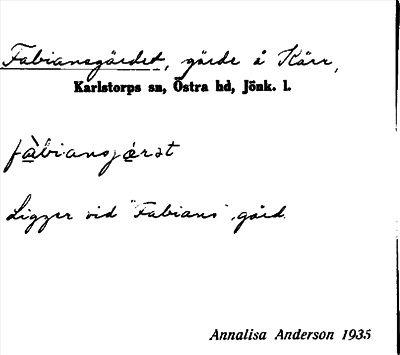 Fabiansgärdet, gärde å Kärr,
Karlstorps sn, Östra hd, Jönk. l.
fàbiansjærət
Ligger vid "Fabians" gärd.
Annalisa Anderson 1935